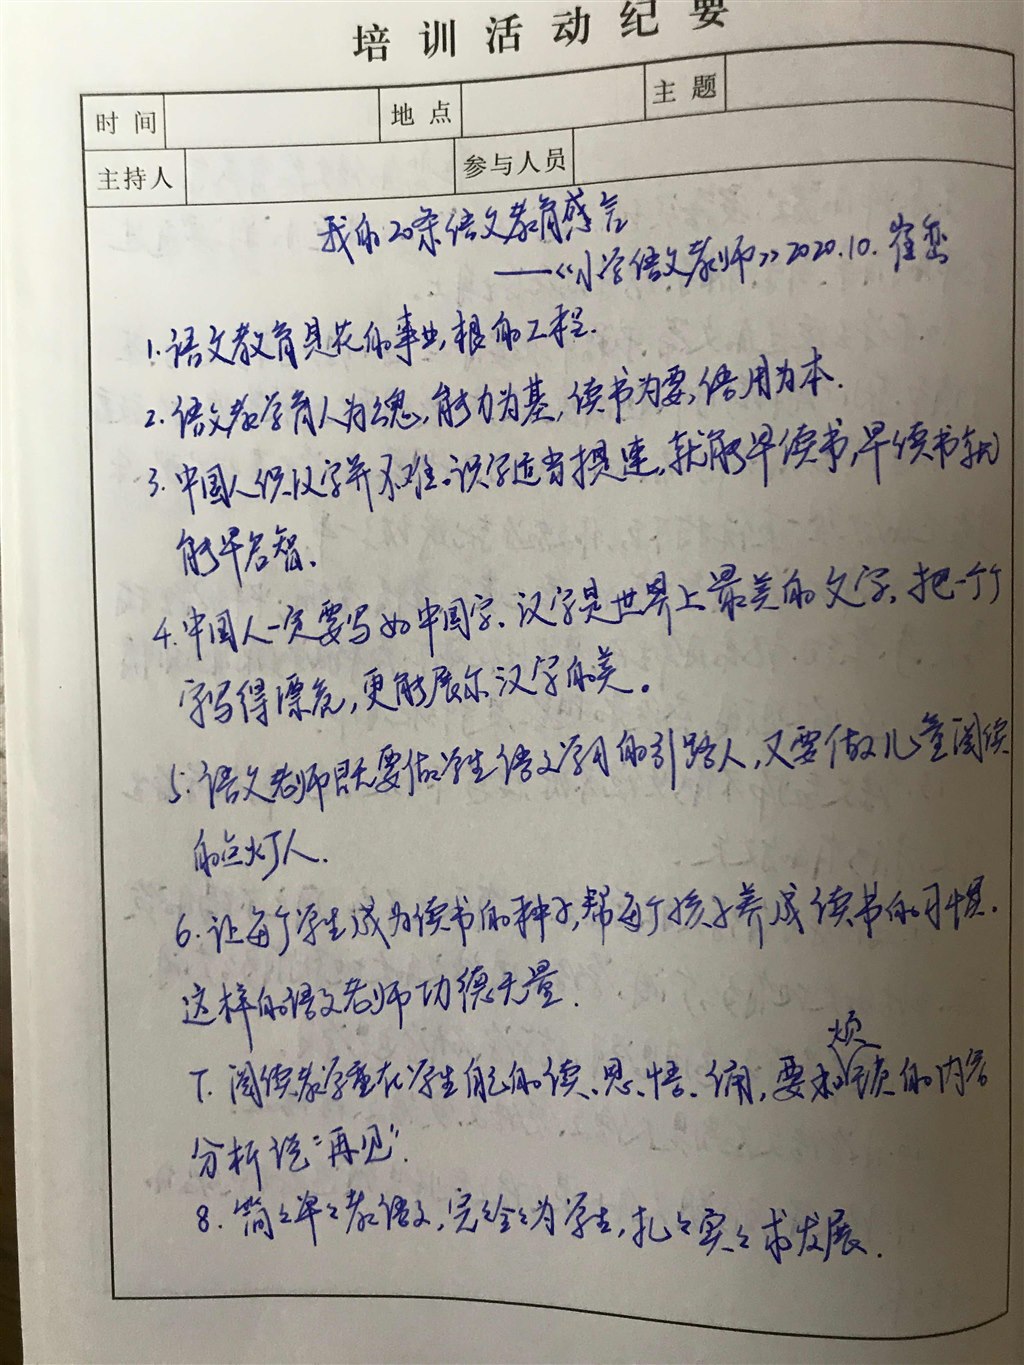 培训活动纪要
时间 地点 主题
主持人 参与人员
我的20条语文教育感言
——《小学语文教师》2020.10.崔峦
1.语文教育是花的事业,根的工程.
2.语文教学育人为魂,能力为基,读书为要,语用为本.
3.中国人识汉字并不难。识字适当提速,就能早读书,早读书就
能早启智.
4.中国人一定要写好中国字.汉字是世界上最美的文字,把一个个
字写得漂亮,更能展示汉字的美。
5.语文老师既要做学生语文学习的引路人,又要做儿童阅读
的点灯人.
6.让每个学生成为读书的种子,帮每个孩子养成读书的习惯.
这样的语文老师功德无量.
7.阅读教学重在学生自己的读、思、悟、用,要和烦琐的内容
分析说“再见”.
8.简々单々教语文,完々全々为学生,扎々实々求发展.